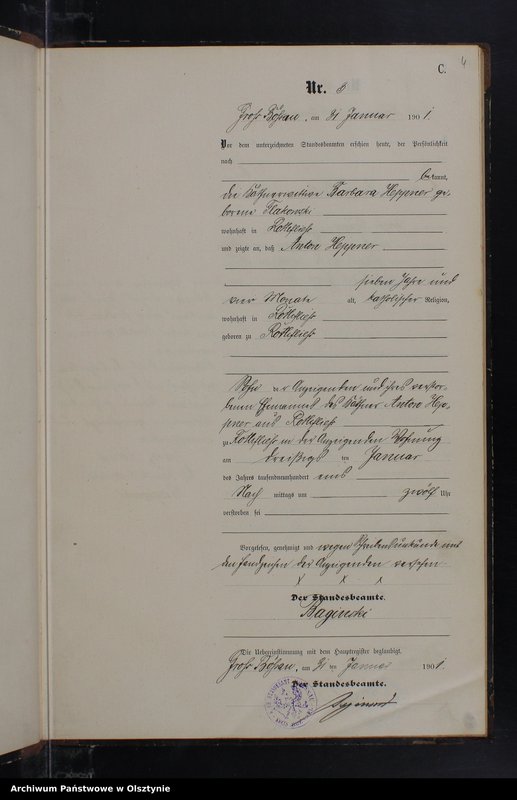 4
C.
Nr. 3
Groß Bößau, am 31 Januar 1901.
Vor dem unterzeichneten Standesbeamten erschien heute, der Persönlichkeit
nach
bekannt,
die Käthnerwittwe Barbara Heppner ge-
borene
wohnhaft in Rothfließ
und zeigte an, daß Anton Heppner
sieben Jahre und
vier Monate alt, katholischer Religion,
wohnhaft in Rothfließ
geboren zu Rothfließ
Sohn der Anzeigenden und ihres verstor-
benen Ehemannes des Käthner Anton Hep-
pner aus Rothfließ
zu Rothfließ in der Anzeigenden Wohnung
am dreißigs ten Januar
des Jahres tausendneunhundert eins
Nach mittags um zwölf Uhr
verstorben sei
Vorgelesen, genehmigt und wegen Schreibensunkunde mit
den Handzeichen der Anzeigenden versehen
Der Standesbeamte.
Baginski
Die Uebereinstimmung mit dem Hauptregister beglaubigt.
Groß Bößau, am 31 ten Januar 1901.
Der Standesbeamte.
Baginski
Archiwum Państwowe w Olsztynie